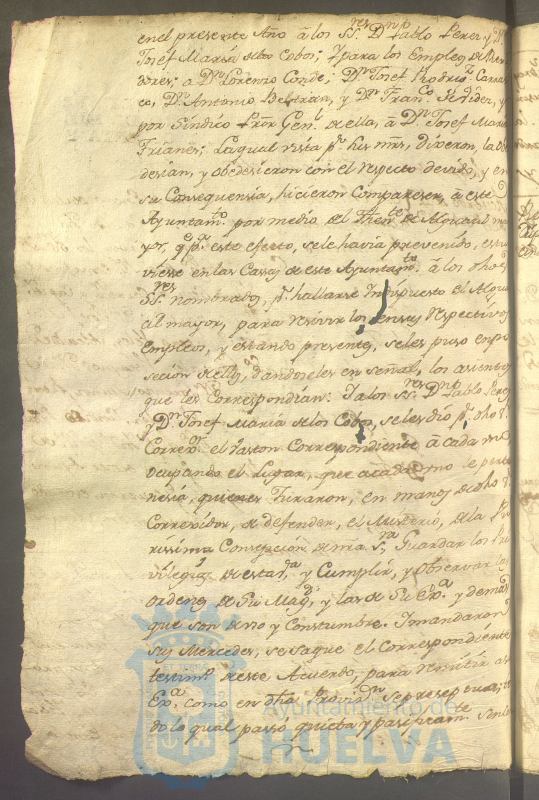 en el presente Año â los SS.res D.n Pablo Perez y D.n
Josef Maria de los Cobos; Y para los Empleos de Rexi
dores; a D.n Lorenzo Conde; D.n Josef Rodrig.z Carras
co, D.n Antonio Beltran, y D.n Fran.co y
por Sindico Pror Gen.l de ella, â D.n Josef Maria
Frianes; La qual vista p.r sus mrs, dixeron, la obe
desian, y obedesieron con el respecto devido, y en
su Consequensia, hicieron Compareser, â este
Ayuntam.to por medio del Then.te de Alguacil ma
yor, q.e p.a este efecto, se le havia prevenido, estu
viese en las Casas de este Ayuntam.to â los dhos
SS.res nombrados, p.r hallarse Indispuesto el Algua
cil mayor, para resivir los en sus respectivos
Empleos, y estando presentes, seles puso en po
secion de ellos, dandoseles en señal, los asientos
que les Correspondian: Y a los SS.res D.n Pablo Perez
y D.n Josef Maria de los Cobos, seles dió p.r dho S.r
Correx.or el Baston Correspondiente â cada uno
Ocupando el Lugar, que acada uno le perte
nesia, quienes Juraron, en manos de dho S.r
Correxidor, de defender, el Misterio, de la Pu
rissima Consepcion de nra S.ra Guardar los Pri
vilegios de esta V.a y Cumplir, y Observar las
ordenes de Su Mag.d, y las de Su Ex.a y demas
que son de uso y Constumbre. Y mandaron
Sus Mercedes, se saque el Correspondiente
testim.o de este Acuerdo, para remitir a S.
Ex.a como en dha Provid.n se preseptua; to
do lo qual passó, quieta y pasificam.te
Ayuntamiento de
HUELVA